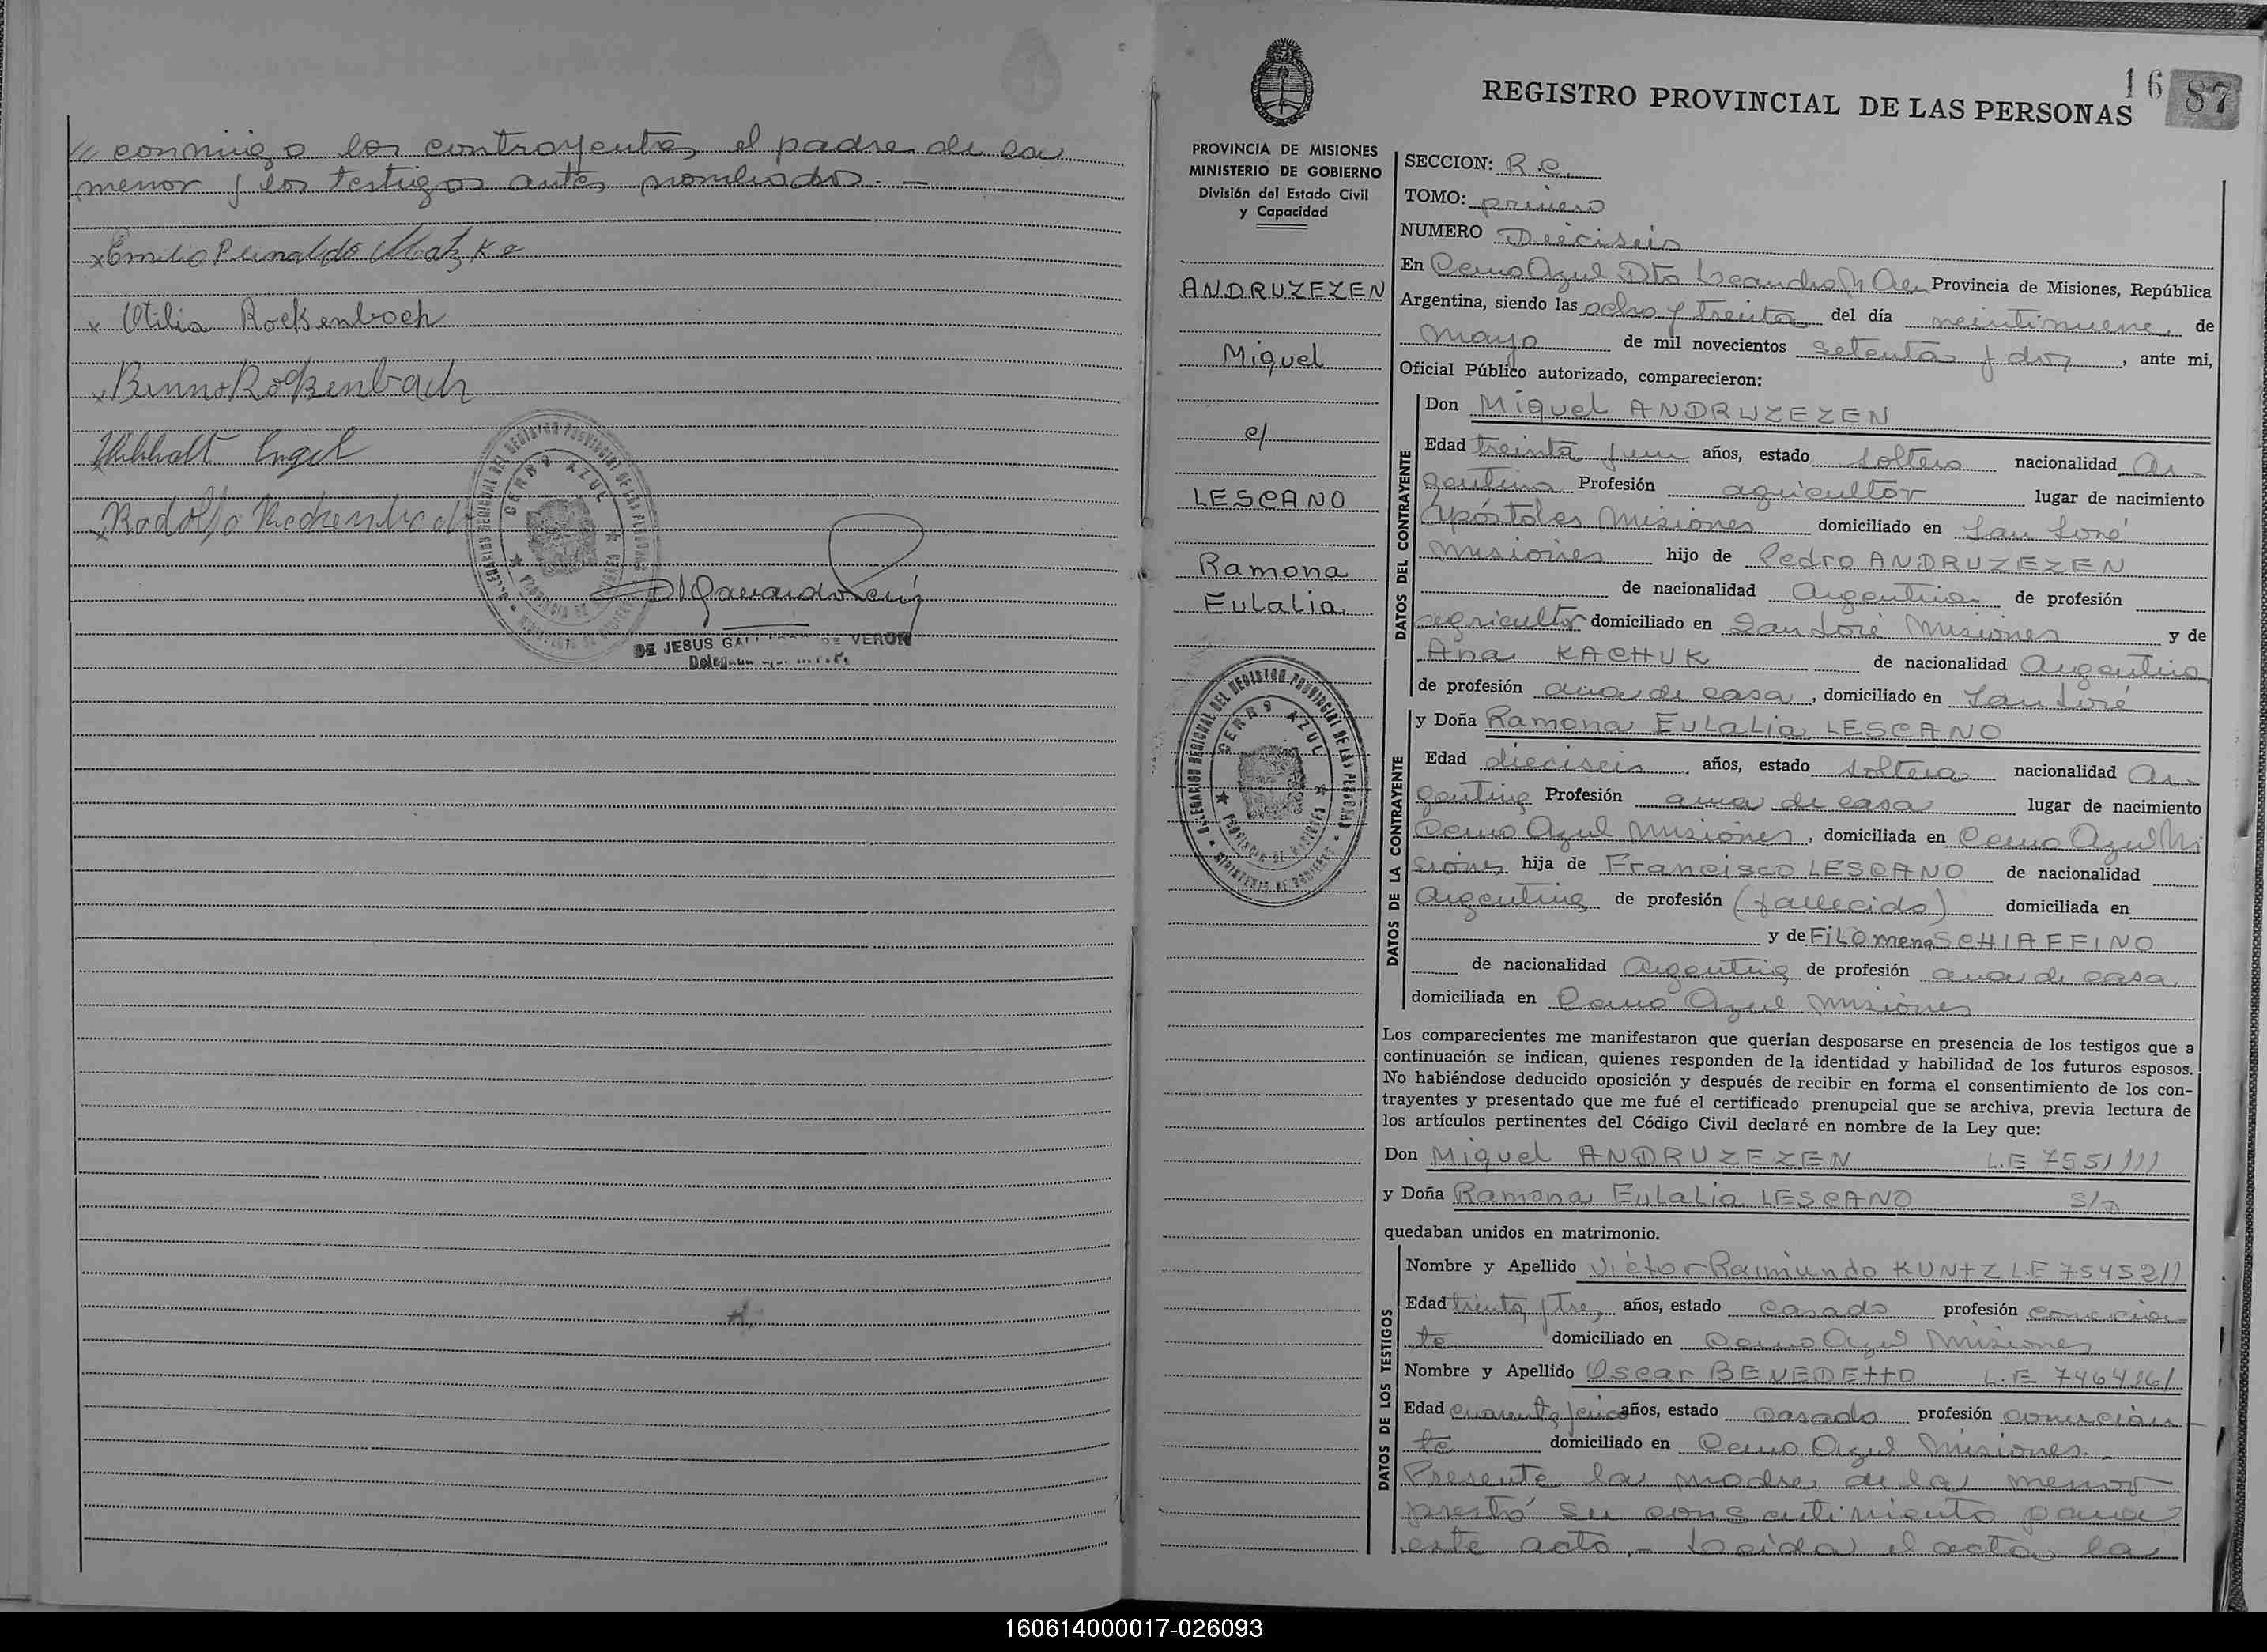 // conmigo los contrayentes, el padre de la
menor y los testigos antes nombrados. -
x Emilio Reinaldo Matzke
x Otilia Rockenbach
x Benno Rockenbach
Engel
x Rodolfo Rockenbach
DELEGACION REGIONAL DEL REGISTRO PROVINCIAL DE LAS PERSONAS
CERRO AZUL
PROVINCIA DE MISIONES
MINISTERIO DE GOBIERNO
DE JESUS DE VERON
16 87
REGISTRO PROVINCIAL DE LAS PERSONAS
PROVINCIA DE MISIONES
MINISTERIO DE GOBIERNO
División del Estado Civil
y Capacidad
ANDRUZEZEN
Miguel
c/
LESCANO
Ramona
Eulalia
DELEGACION REGIONAL DEL REGISTRO PROVINCIAL DE LAS PERSONAS
CERRO AZUL
PROVINCIA DE MISIONES
MINISTERIO DE GOBIERNO
SECCION: R.C.
TOMO: primero
NUMERO Dieciseis
En Cerro Azul Dto Leandro N Alem Provincia de Misiones, República
Argentina, siendo las ocho y treinta del día veintinueve de
mayo de mil novecientos setenta y dos, ante mi,
Oficial Público autorizado, comparecieron:
DATOS DEL CONTRAYENTE
Don Miguel ANDRUZEZEN
Edad treinta y un años, estado soltero nacionalidad Ar-
gentina Profesión agricultor lugar de nacimiento
Apóstoles Misiones domiciliado en San José
Misiones hijo de Pedro ANDRUZEZEN
de nacionalidad Argentina de profesión
agricultor domiciliado en San José Misiones y de
Ana KACHUK de nacionalidad Argentina
de profesión ama de casa, domiciliado en San José
DATOS DE LA CONTRAYENTE
y Doña Ramona Eulalia LESCANO
Edad dieciseis años, estado soltera nacionalidad Ar-
gentina Profesión ama de casa lugar de nacimiento
Cerro Azul Misiones, domiciliada en Cerro Azul Mi
siones hija de Francisco LESCANO de nacionalidad
Argentina de profesión (fallecido) domiciliada en
y de Filomena SCHIAFFINO
de nacionalidad Argentina de profesión ama de casa
domiciliada en Cerro Azul Misiones
Los comparecientes me manifestaron que querían desposarse en presencia de los testigos que a
continuación se indican, quienes responden de la identidad y habilidad de los futuros esposos.
No habiéndose deducido oposición y después de recibir en forma el consentimiento de los con-
trayentes y presentado que me fué el certificado prenupcial que se archiva, previa lectura de
los artículos pertinentes del Código Civil declaré en nombre de la Ley que:
Don Miguel ANDRUZEZEN L.E 7551111
y Doña Ramona Eulalia LESCANO S/D
quedaban unidos en matrimonio.
DATOS DE LOS TESTIGOS
Nombre y Apellido Victor Raimundo KUNTZ L.E 7545211
Edad treinta y Tres años, estado casado profesión comercian
te domiciliado en Cerro Azul Misiones
Nombre y Apellido Oscar BENEDETTO L.E
Edad cuarenta y cinco años, estado casado profesión comercian-
te domiciliado en Cerro Azul Misiones.
Presente la madre de la menor
prestó su consentimiento para
este acto.- Leida el acta la
160614000017-026093